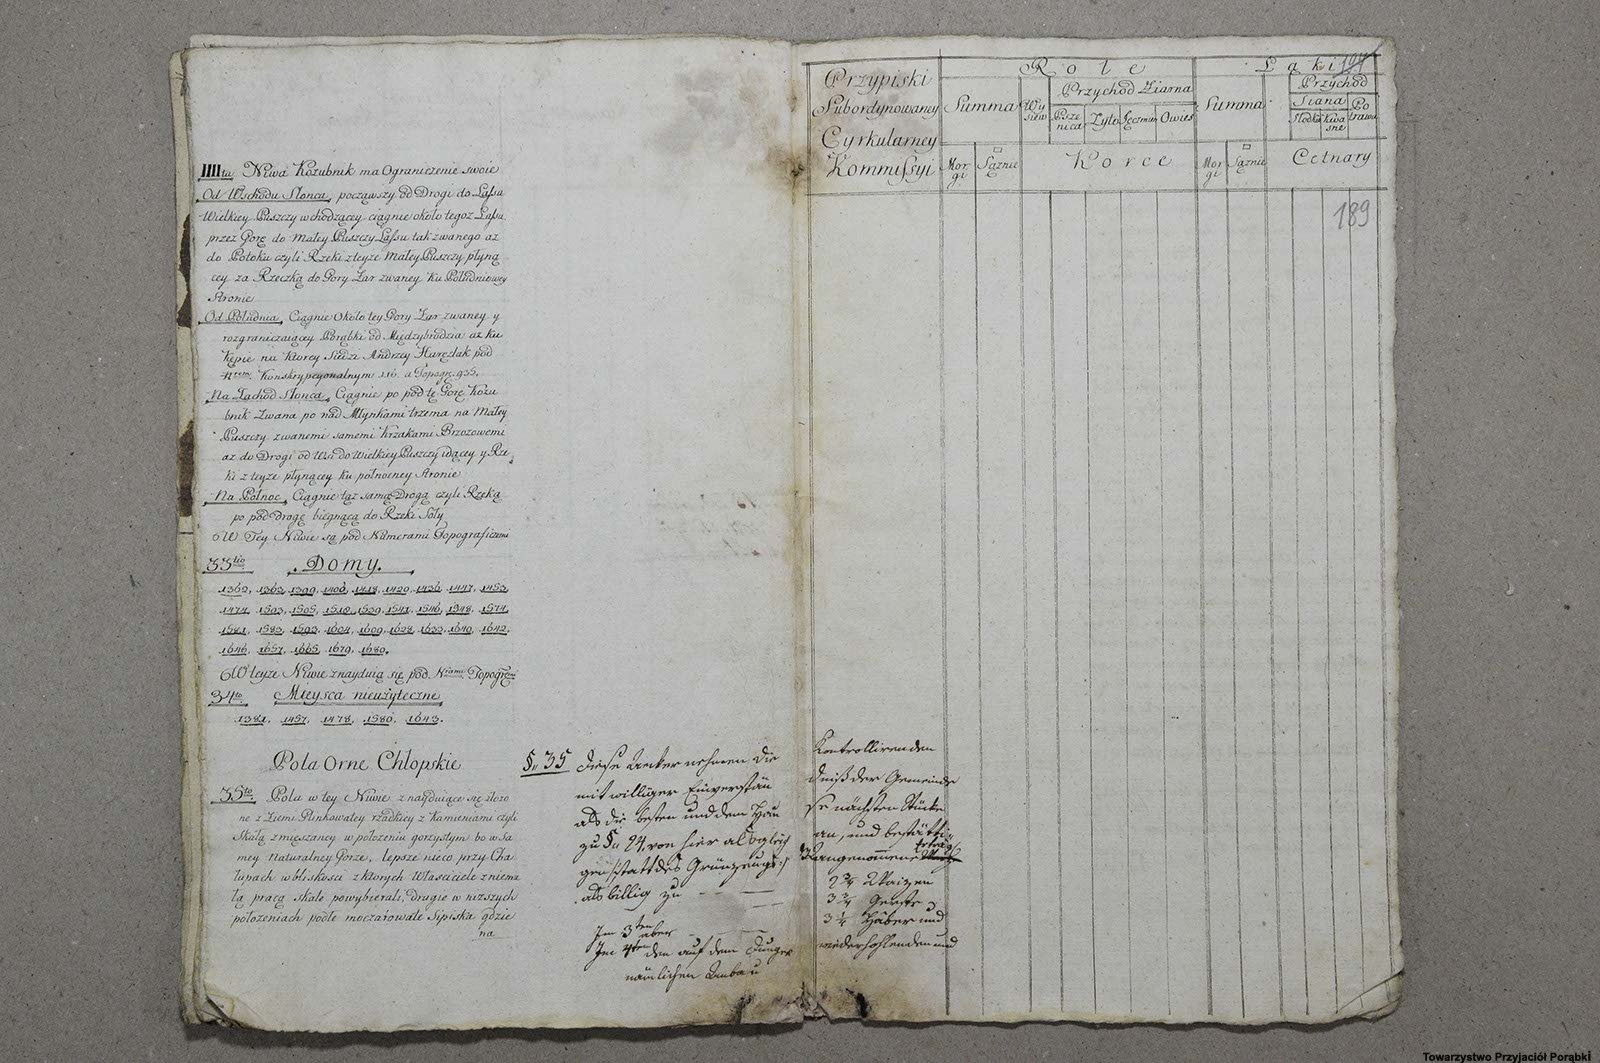 IIIIta Niwa Kozubnik ma Ograniczenie swoie
Od Wschodu Słonca, począwszy od Drogi do Lassu
Wielkiey Puszczy wchodzącey ciągnie około tegoz Lassu
przez Gorę do Małey Puszczy Lassu tak zwanego az
do Potoku czyli Rzeki z teyze Małey Puszczy płyną
cey za Rzeczką do Gory Zar zwaney ku Południowey
Stronie
Od Południa, Ciągnie Około tey Gory Zar zwaney y
rozgraniczaiącey Porąbki od Międzybrodzia az ku
Kępie na ktorey Siedzi Andrzey Harężlak pod
Nrem Konskrypcyonalnym 116. a Topogr. 935.
Na Zachod Słonca, Ciągnie po pod tę Gorę Kozu
bnik Zwana po nad Młynkami trzema na Małey
Puszczy zwanemi samemi Krzakami Brzozowemi
az do Drogi od Wsi do Wielkiey Puszczy idącey y Rze
ki z teyze płynącey ku połnocney Stronie
Na Połnoc, Ciągnie taz samą Drogą czyli Rzeką
po pod Drogę biegnącą do Rzeki Soły
W Tey Niwie są pod Numerami Topograficznemi
33tio Domy.
1362, 1363, 1399, 1406, 1418, 1429, 1436, 1447, 1453,
1474, 1503, 1505, 1518, 1539, 1541, 1546, 1548, 1574,
1581, 1583, 1593, 1604, 1609, 1628, 1633, 1640, 1642,
1646, 1657, 1665, 1679, 1680.
W teyze Niwie znayduią się pod Nrami Topogr:
34to Mieysca nieużyteczne
1381, 1457, 1478, 1580, 1643.
Pola Orne Chłopskie
35to Pola w tey Niwie znayduiące się złozo
ne z Ziemi Płonkowatey rzadkiey z Kamieniami czyli
Skałą zmieszaney w położeniu gorzystym bo w Sa
mey Naturalney Gorze, lepsze nieco przy Cha
łupach w bliskości z ktorych Właściciele z niema
łą pracą skałe powybierali, drugie w nizszych
położeniach podłe moczarowate Sipiska gdzie
na
§u 35 Diese Aecker nehmen die
mit williger Einverstän
als die besten und dem Hau
zu §u 24. von hier als gleich
gen statt des Grünzeugs
als billig zu
Im 3ten aber
Im 4ten den auf dem Dunger
nämlichen Anbau
Przypiski
Subordynowaney
Cyrkularney
Kommissyi
Role
Summa
Wy
siew
Przychod Ziarna
Psze
nica
Zyto
Jęczmień
Owies
Mor
gi
Sąznie
Korce
Łąki
Summa
Przychod
Siana
Słodkie
Kwa
sne
Po
trawu
Mor
gi
Sąznie
Cetnary
194
189
Kontrollirenden
dniß der Gemeinde
se nächsten Stücke
an, und bestätti
angenommene
Ertrag
2 2/4 Waizen
3 2/4 Gerste
3 1/4 Haber und
wiederhohlenden und
Towarzystwo Przyjaciół Porąbki